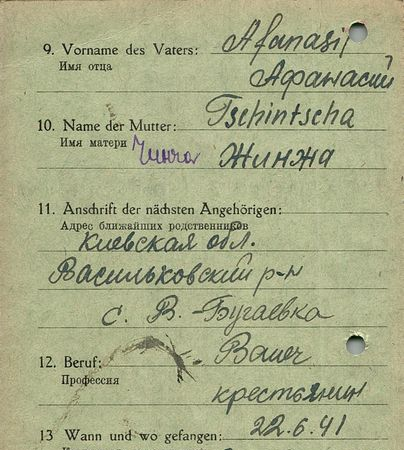 9. Vorname des Vaters: Afanasij
Имя отца Афанасий
Tschintscha
10. Name der Mutter:
Имя матери Чинча Жинжа
11. Anschrift der nächsten Angehörigen:
Адрес ближайших родственников
Киевская обл.
Васильковский р-н
с. В.-Бугаевка
12. Beruf: Bauer
Профессия
крестьянин
13 Wann und wo gefangen: 22.6.41